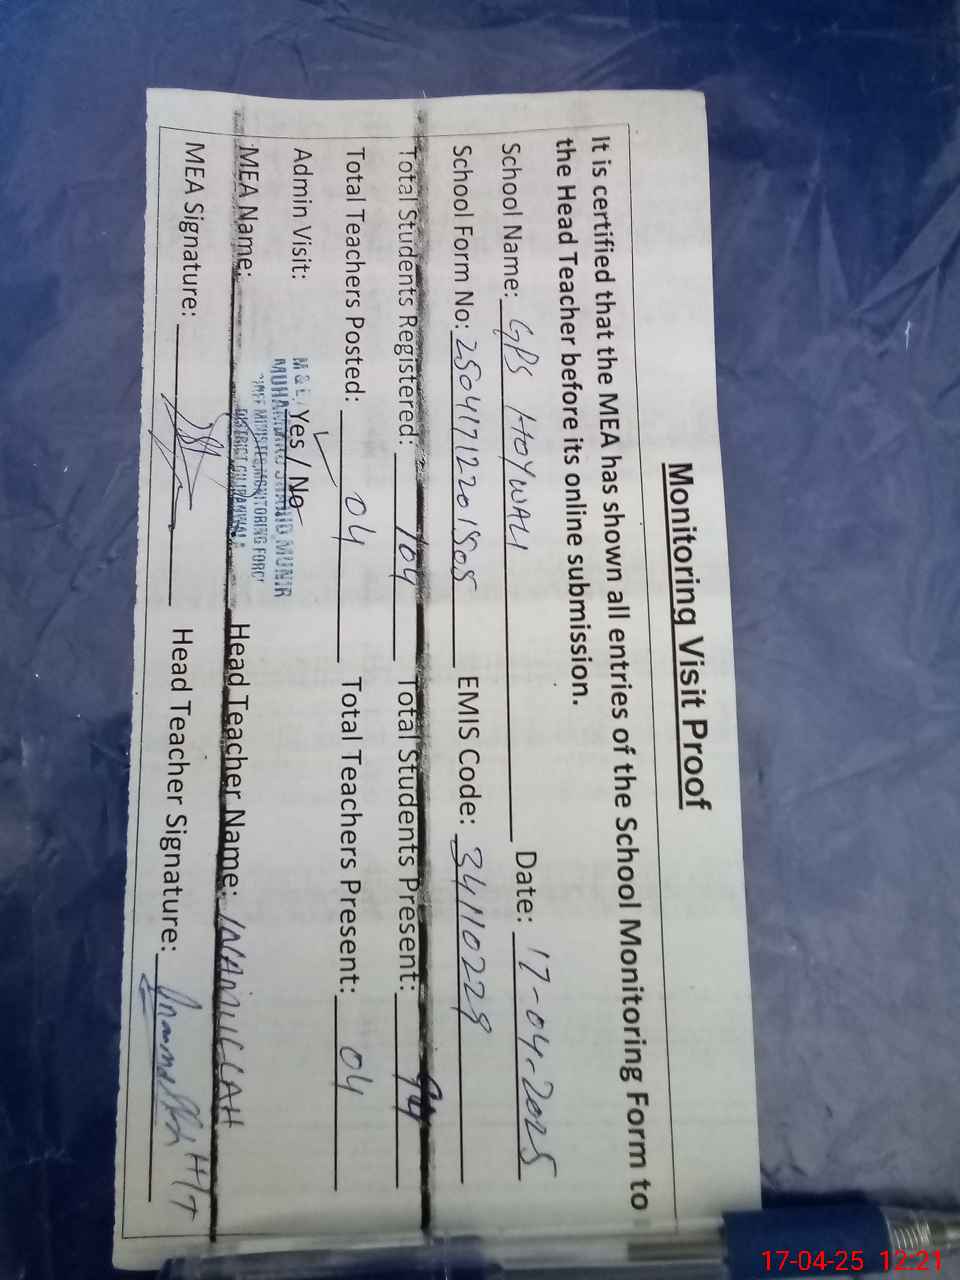 Monitoring Visit Proof
It is certified that the MEA has shown all entries of the School Monitoring Form to
the Head Teacher before its online submission.
School Name: GPS HOYWALI Date: 17-04-2025
School Form No: EMIS Code: 34110229
Total Students Registered: 104 Total Students Present: 94
Total Teachers Posted: 04 Total Teachers Present: 04
Admin Visit: Yes / No
M & E
MUHAMMAD SHAHID MUNIR
CHIEF MINISTER MONITORING FORCE
DISTRICT GUJRANWALA
MEA Name: Head Teacher Name: INAMULLAH
MEA Signature: Head Teacher Signature: H/T
17-04-25 12:21